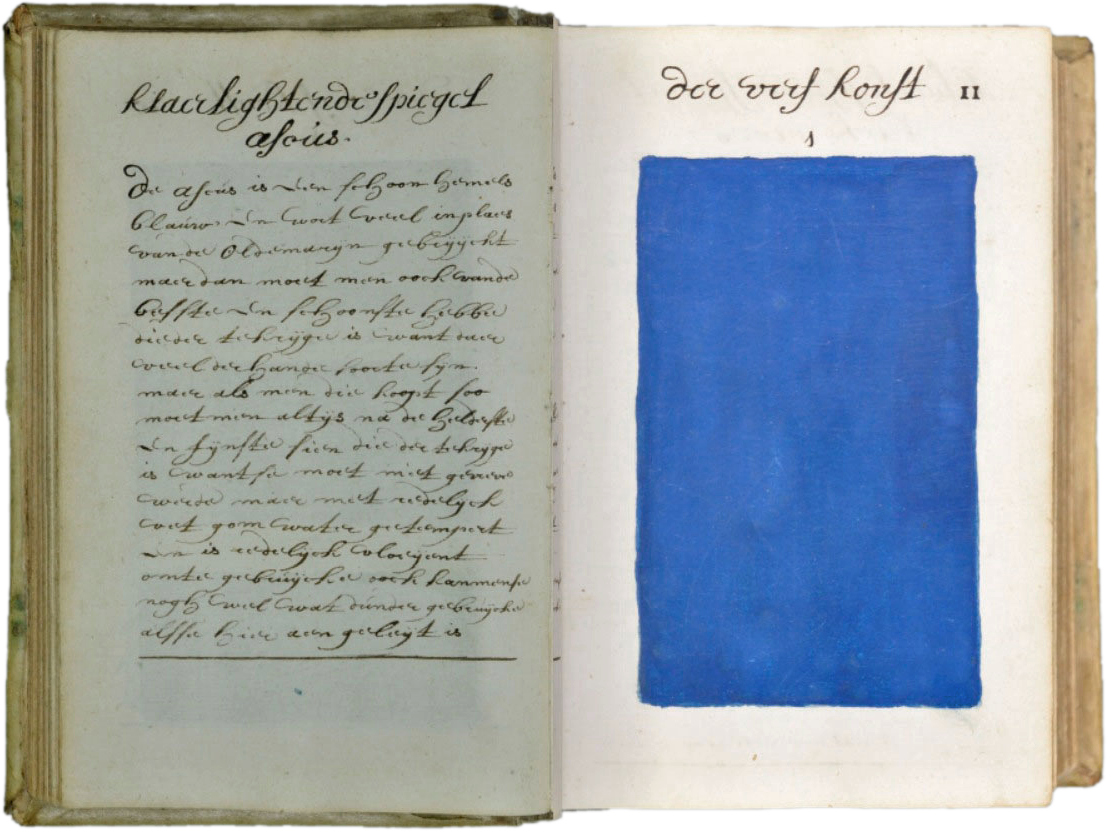 klaerlightende spiegel
ascus.
De ascus is een schoon hemels
blauw en wort veel inplaes
vande Oldemaryn gebrüÿcht
maer dan moet men oock vande
besste en schoonste hebbe
dieder tekrÿge is want daer
veel derhande soorte sÿn.
maer als men die koopt soo
moet men altÿs na de helderste
en fÿnste sien die der tekrÿge
is want se moet niet gevreve
werde maer met redelÿck
vet gom water getempert
en is redelÿck vloeÿent
omte gebrüÿcke oock kanmense
nogh wel wat dunder gebruÿcke
alsse hier aen geleÿt is
der verf konst 11
1